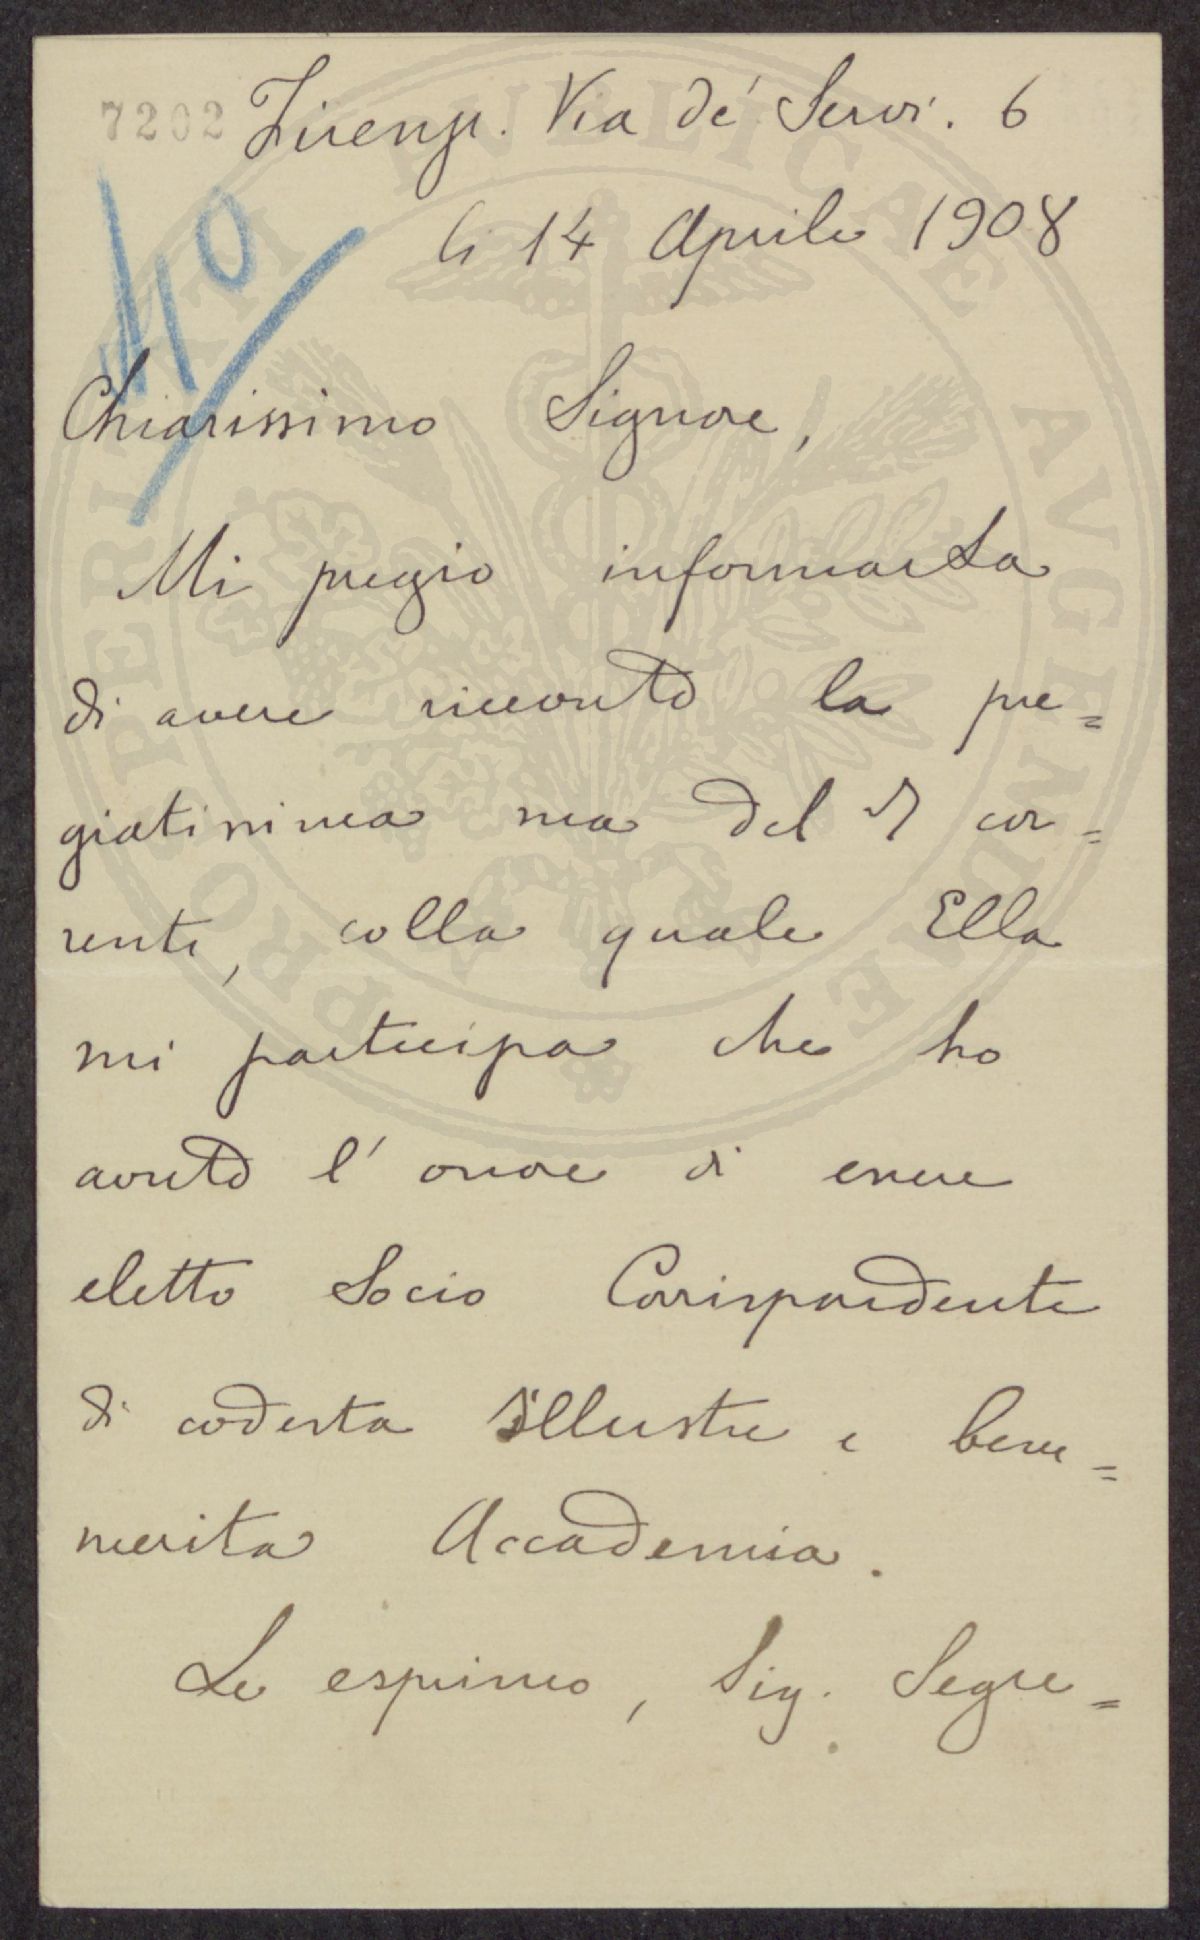 7202 Firenze. Via de' Servi. 6
110
li 14 Aprile 1908
Chiarissimo Signore,
Mi pregio informarLa
di avere ricevuto la pre=
giatissima sua del cor=
rente, colla quale Ella
mi partecipa che ho
avuto l'onore di essere
eletto Socio Corrispondente
di codesta illustre e bene=
merita Accademia.
Le esprimo, Sig. Segre=
PROSPERITATI PVBLICAE AVGENDAE